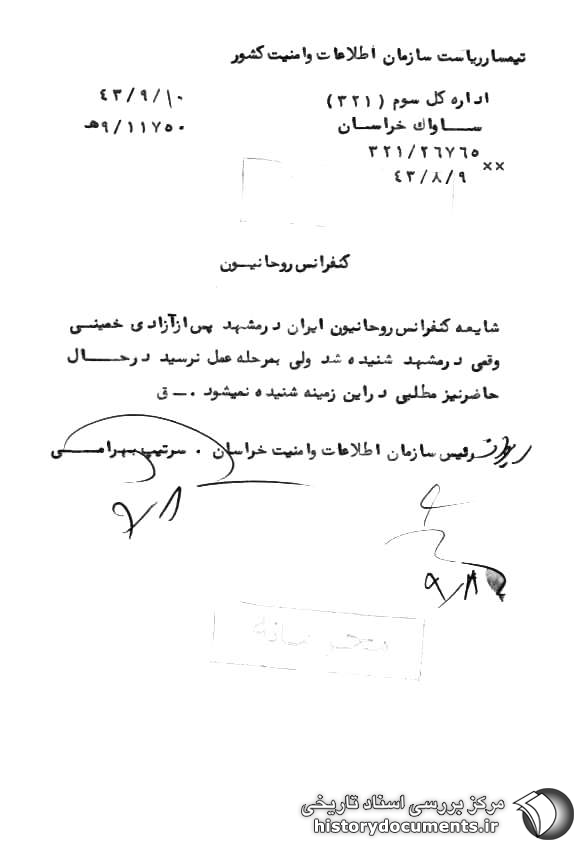 تیمسار ریاست سازمان اطلاعات وامنیت کشور
اداره کل سوم (۳۲۱)
۴۳/۹/۱۰
ساواک خراسان
۹/۱۱۷۵۰هـ
۳۲۱/۲۶۷۶۵
××
۴۳/۸/۹
کنفرانس روحانیون
شایعه کنفرانس روحانیون ایران درمشهد پس ازآزادی خمینی
وقمی درمشهد شنیده شد ولی بمرحله عمل نرسید درحال
حاضرنیز مطلبی دراین زمینه شنیده نمیشود . ــ ق
رئیس سازمان اطلاعات وامنیت خراسان . سرتیپ بهرامی
محرمانه
مرکز بررسی اسناد تاریخی
historydocuments.ir